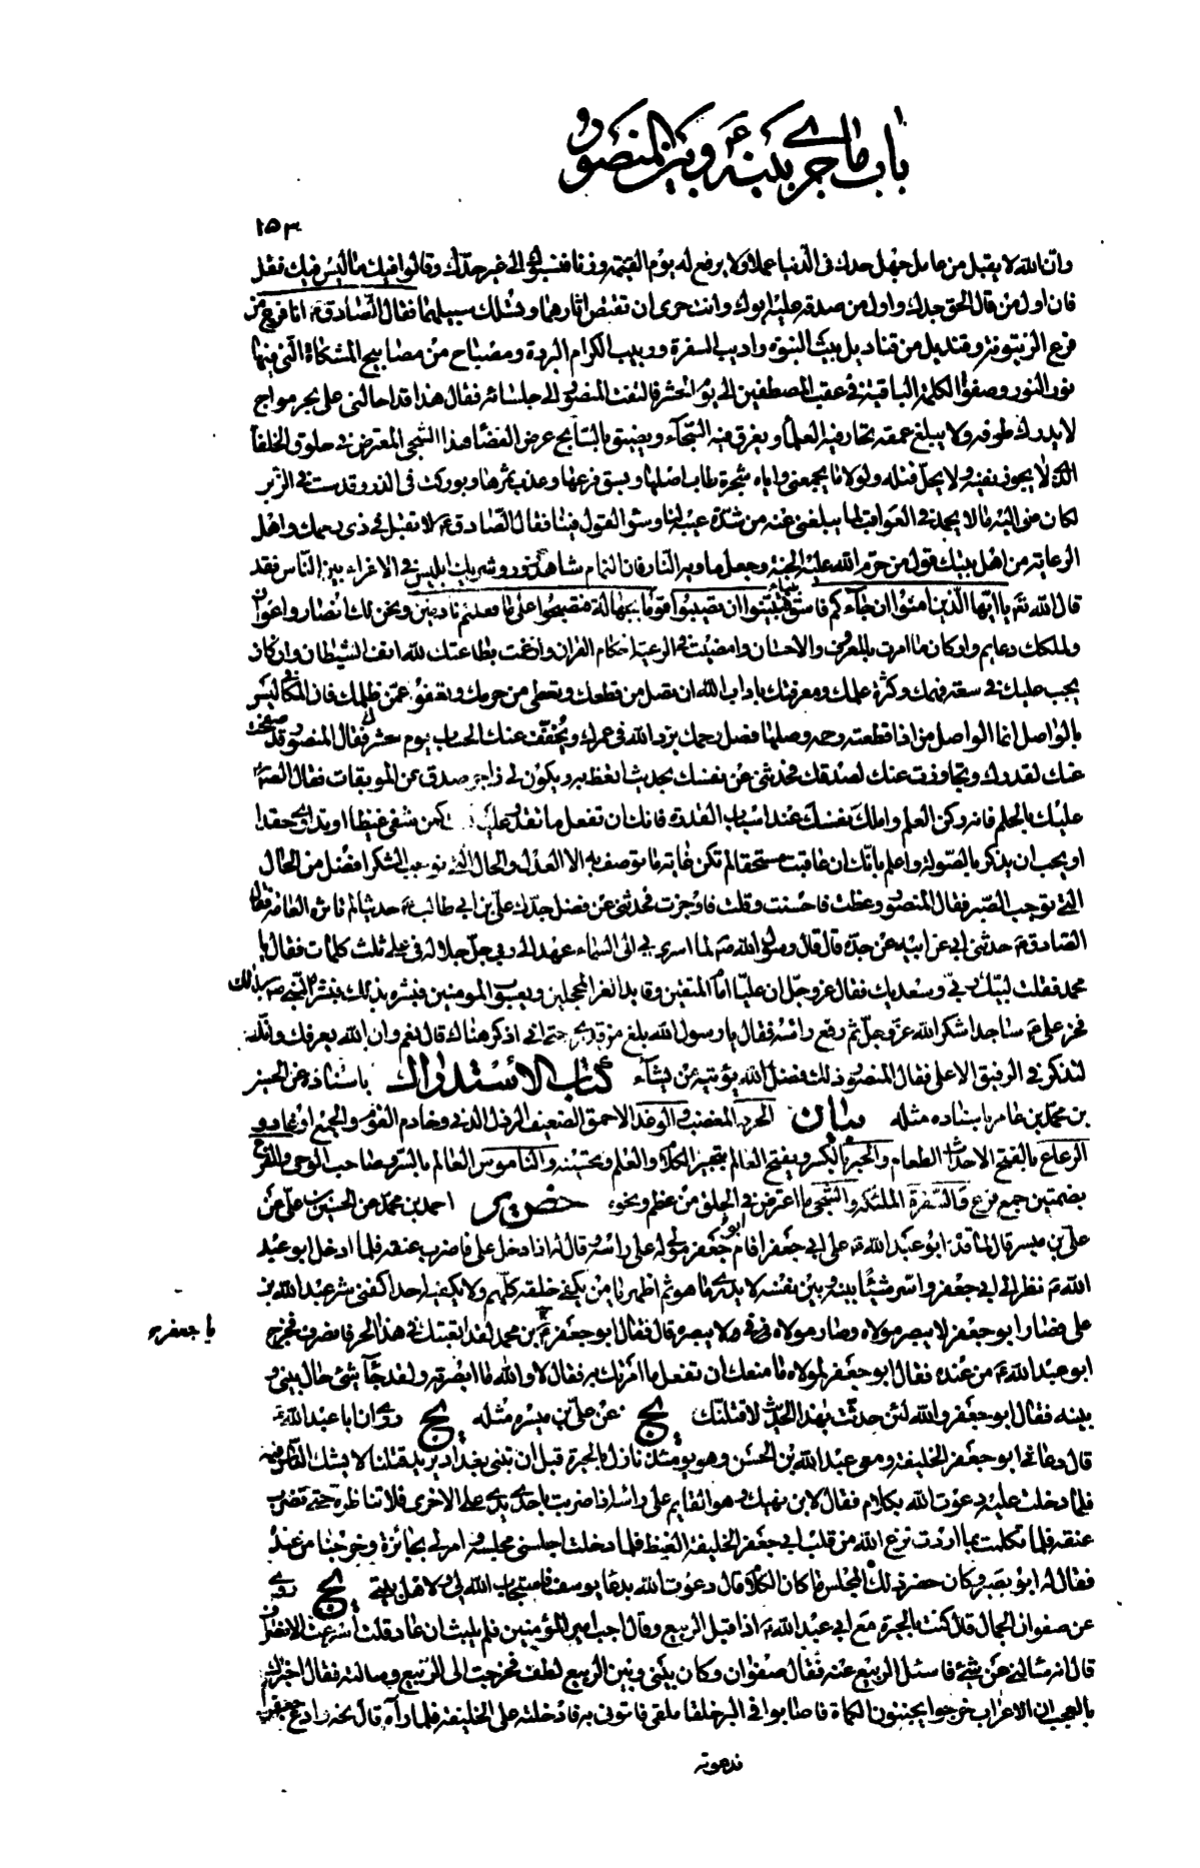 باب ما جرى بينه ع وبين المنصور
١٥٣
وان الله لا يقبل من عامل جهل حدك فى الدنيا عملا ولا يرفع له يوم القيمة وزنا فنسبوك الى غير جدك وقالوا فيك ما ليس فيك فقل
فان اول من قال الحق جدك واول من صدقه عليه ابوك وانت حرى ان تقتص اثارهما وتسلك سبيلهما فقال الصادق ع انا فرع من
فرع الزيتونة وقنديل من قناديل بيت النبوة واديب السفرة وربيب الكرام البررة ومصباح من مصابيح المشكاة التى فيها
نور النور وصفو الكلمة الباقية فى عقب المصطفين الى يوم الحشر فالتفت المنصور الى جلسائه فقال هذا قد احالنى على بحر مواج
لا يدرك طرفه ولا يبلغ عمقه تحار فيه العلماء ويغرق فيه السبحاء ويضيق بالسابح عرض الفضاء هذا الشجى المعترض فى حلوق الخلفاء
الذى لا يجوز نفيه ولا يحل قتله ولولا ما يجمعنى واياه شجرة طاب اصلها وبسق فرعها وعذب ثمرها وبوركت فى الذر وقدست فى الزبر
لكان منى اليه ما لا يحمد فى العواقب لما يبلغنى عنه من شدة عيبه لنا وسوء القول فينا فقال الصادق ع لا تقبل فى ذى رحمك واهل
الرعاية من اهل بيتك قول من حرم الله عليه الجنة وجعل ماويه النار فان النمام شاهد زور وشريك ابليس فى الاغراء بين الناس فقد
قال الله تعم يا ايها الذين امنوا ان جاءكم فاسق بنبأ فتبينوا ان تصيبوا قوما بجهالة فتصبحوا على ما فعلتم نادمين ونحن لك انصار واعوان
ولملكك دعايم واركان ما امرت بالمعروف والاحسان وامضيت فى الرعية احكام القران وارغمت بطاعتك لله انف الشيطان وان كان
يجب عليك فى سعة فهمك وكثرة علمك ومعرفتك باداب الله ان تصل من قطعك وتعطى من حرمك وتعفو عمن ظلمك فان المكافى ليس
بالواصل انما الواصل من اذا قطعته رحمه وصلها فصل رحمك يزد الله فى عمرك ويخفف عنك الحساب يوم حشرك فقال المنصور قد صفحت
عنك لقدرك وتجاوزت عنك لصدقك فحدثنى عن نفسك بحديث اتعظ به ويكون لى زاجر صدق عن الموبقات فقال الصادق ع
عليك بالحلم فانه ركن العلم واملك نفسك عند اسباب القدرة فانك ان تفعل ما تقدر عليه كنت كمن شفى غيظا او تداوى حقدا
او يحب ان يذكر بالصولة واعلم بانك ان عاقبت مستحقا لم تكن غاية ما توصف به الا العدل والحال التى توجب الشكر افضل من الحال
التى توجب الصبر فقال المنصور وعظت فاحسنت وقلت فاوجزت فحدثنى عن فضل جدك على بن ابى طالب ع حديثا لم تاثره العامة فقال
الصادق ع حدثنى ابى عن ابيه عن جده قال قال رسول الله ص لما اسرى بى الى السماء عهد الى ربى جل جلاله فى على ثلث كلمات فقال يا
محمد فقلت لبيك ربى وسعديك فقال عز وجل ان عليا امام المتقين وقايد الغر المحجلين ويعسوب المومنين فبشره بذلك فبشره النبى ص بذلك
فخر على ع ساجدا شكرا لله عز وجل ثم رفع راسه فقال يا رسول الله بلغ من قدرى حتى انى اذكر هناك قال نعم وان الله يعرفك وانك
لتذكر فى الرفيق الاعلى فقال المنصور ذلك فضل الله يؤتيه من يشاء كتاب الاستدراك باسناده عن الحسين
بن محمد بن عامر باسناده مثله بيان الحرد الغضب والوغد الاحمق الضعيف الرذل الدنى وخادم القوم والجمع اوغاد و
الرعاع بالفتح الاحداث الطعام والحبر بالكسر ويفتح العالم بتحبير الكلام والعلم وتحسينه والناموس العالم بالسر وصاحب الوحى والفرع
بضمتين جمع فرع والسفرة الملئكة والشجى ما اعترض فى الحلق من عظم ونحوه خص ير احمد بن محمد عن الحسين بن على عن
على بن ميسر قال لما قدم ابو عبد الله ع على ابى جعفر اقام ابو جعفر مولى له على راسه وقال له اذا دخل على فاضرب عنقه فلما ادخل ابو عبد
الله ع نظر الى ابى جعفر واسر شيئا بينه وبين نفسه لا يدرى ما هو ثم اظهر يا من يكفى خلقه كلهم ولا يكفيه احد اكفنى شر عبد الله بن
على فصار ابو جعفر لا يبصر مولاه وصار مولاه لا يبصره قال فقال ابو جعفر يا جعفر بن محمد لقد اتعبتك فى هذا الحر فانصرف فخرج
يا جعفر
ابو عبد الله ع من عنده فقال ابو جعفر لمولاه ما منعك ان تفعل ما امرتك به فقال لا والله ما ابصرته ولقد جاء شئ حال بينى و
بينه فقال ابو جعفر والله لئن حدثت بهذا الحديث لاقتلنك يج عن على بن ميسره مثله يج روى ان ابا عبد الله ع
قال دعانى ابو جعفر الخليفة ومعى عبد الله بن الحسن وهو يومئذ نازل بالحيرة قبل ان تبنى بغداد يريد قتلنا لا يشك الناس فيه
فلما دخلت عليه دعوت الله بكلام فقال لابن نهيك وهو القايم على راسه اذا ضربت باحدى يدى على الاخرى فلا تناظره حتى تضرب
عنقه فلما تكلمت بما اردت نزع الله من قلب ابى جعفر الخليفة الغيظ فلما دخلت اجلسنى مجلسه وامر لى بجائزة وخرجنا من عنده
فقال له ابو بصير وكان حضر ذلك المجلس ما كان الكلام قال دعوت الله بدعاء يوسف فاستجاب الله لى ولاهل بيتى يج روى
عن صفوان الجمال قال كنت بالحيرة مع ابى عبد الله ع اذ اقبل الربيع وقال اجب امير المؤمنين فلم يلبث ان عاد قلت اسرعت الانصراف
قال انه سالنى عن شئ فاسئل الربيع عنه فقال صفوان وكان بينى وبين الربيع لطف فخرجت الى الربيع وسالته فقال اخبرك
بالعجب ان الاعراب خرجوا يجتنون الكماة فاصابوا فى البر خلقا ملقى فاتونى به فادخلته على الخليفة فلما رآه قال نحه وادع جعفرا
فدعوته